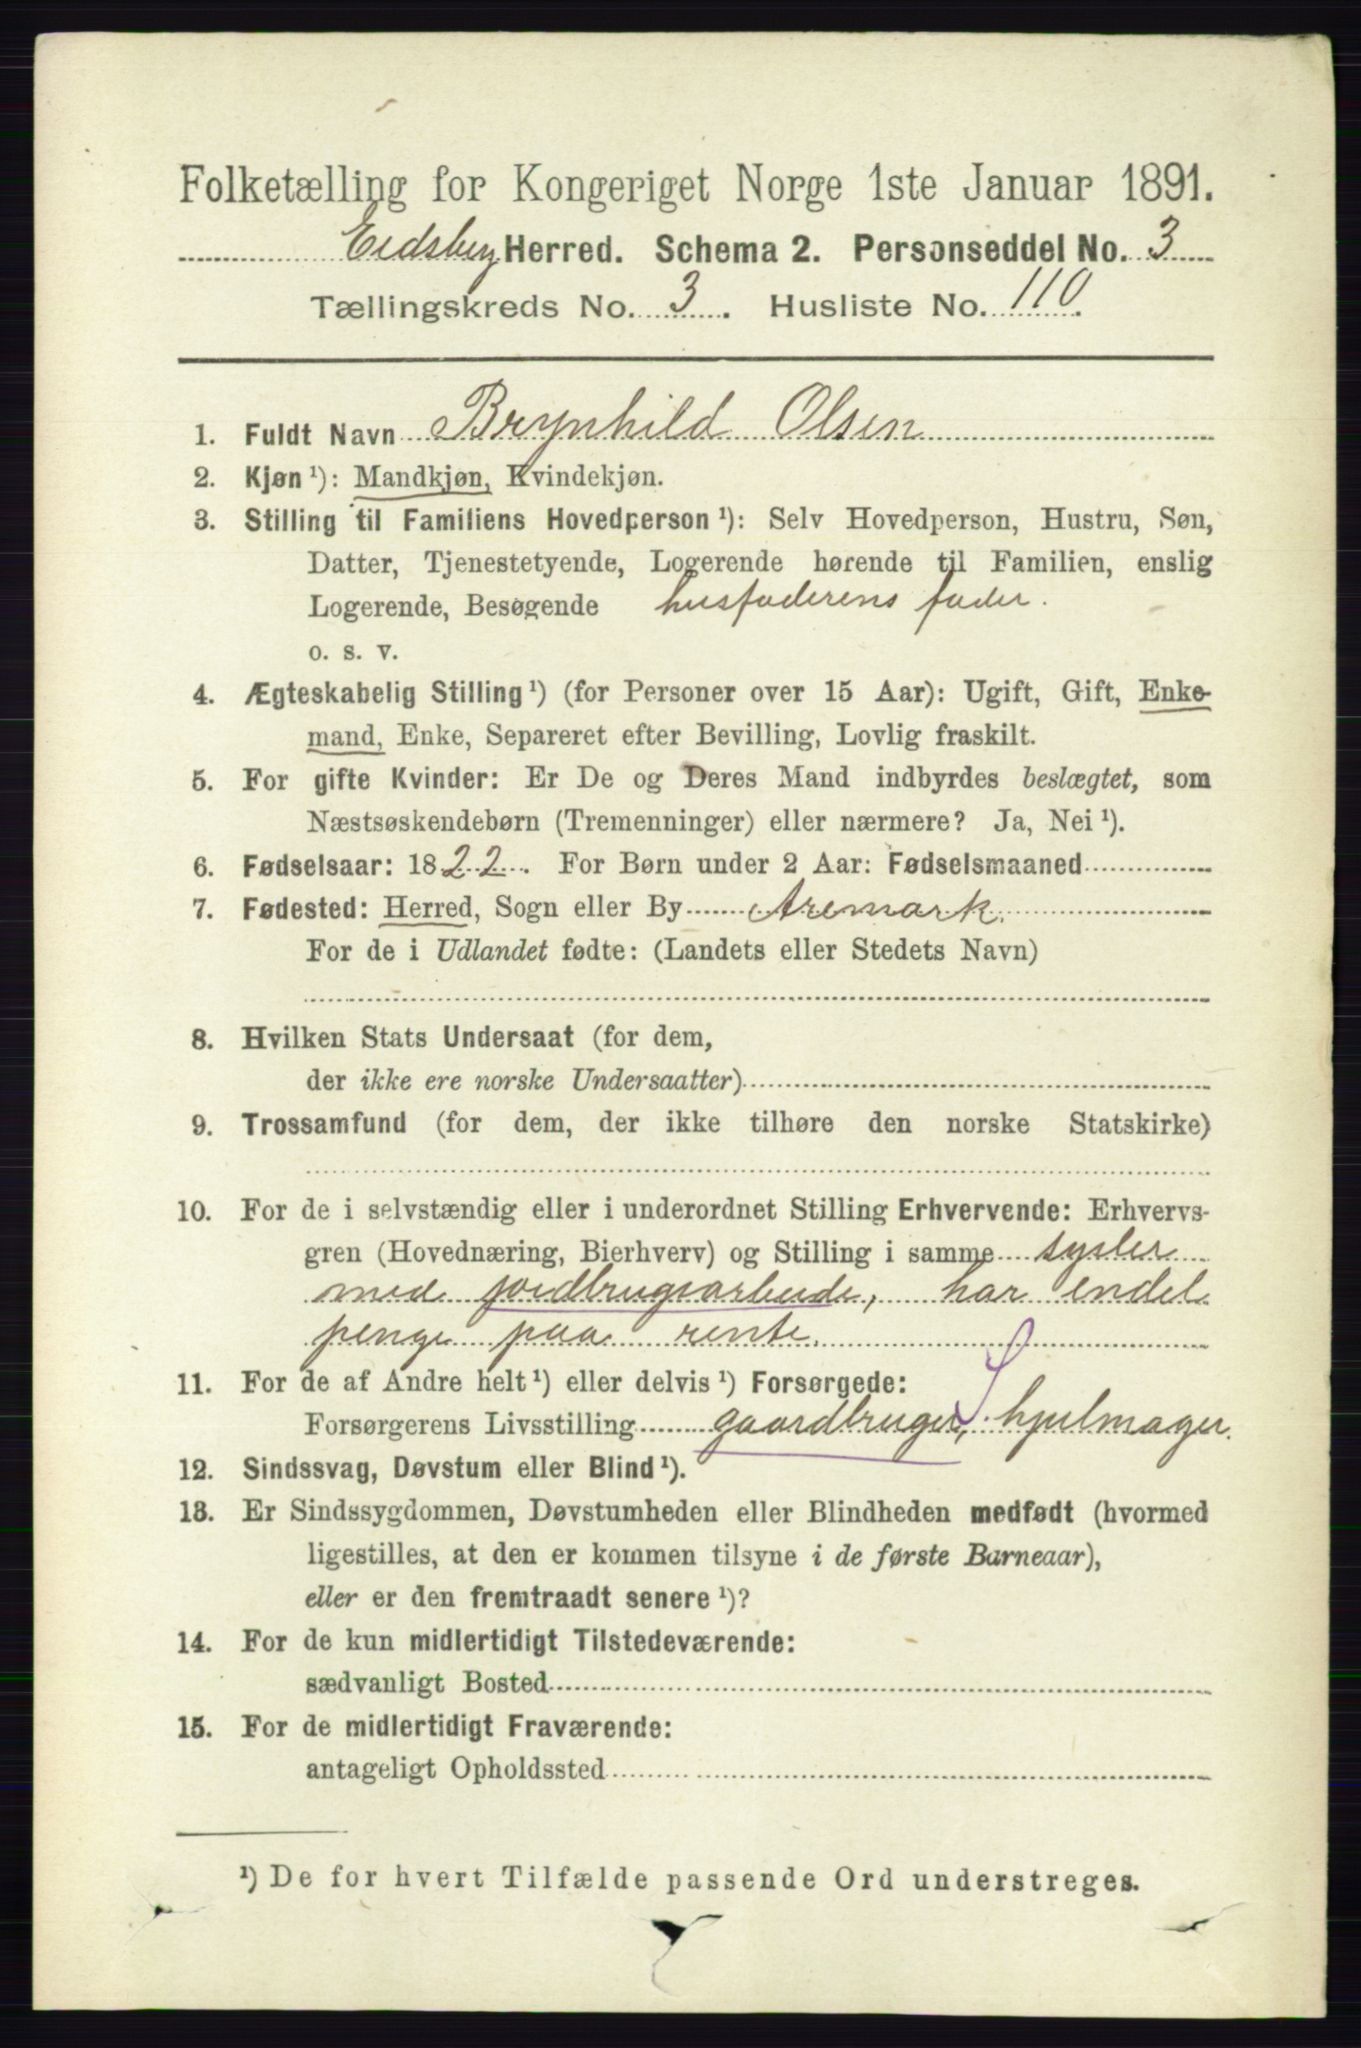 Folketælling for Kongeriget Norge 1ste Januar 1891.
Eidsberg Herred. Schema 2. Personseddel No. 3
Tællingskreds No. 3. Husliste No. 110.
1. Fuldt Navn Brynhild Olsen
2. Kjøn ¹): Mandkjøn, Kvindekjøn.
3. Stilling til Familiens Hovedperson ¹): Selv Hovedperson, Hustru, Søn,
Datter, Tjenestetyende, Logerende hørende til Familien, enslig
Logerende, Besøgende husfaderens fader.
o. s. v.
4. Ægteskabelig Stilling ¹) (for Personer over 15 Aar): Ugift, Gift, Enke-
mand, Enke, Separeret efter Bevilling, Lovlig fraskilt.
5. For gifte Kvinder: Er De og Deres Mand indbyrdes beslægtet, som
Næstsøskendebørn (Tremenninger) eller nærmere? Ja, Nei ¹).
6. Fødselsaar: 1822. For Børn under 2 Aar: Fødselsmaaned
7. Fødested: Herred, Sogn eller By Aremark.
For de i Udlandet fødte: (Landets eller Stedets Navn)
8. Hvilken Stats Undersaat (for dem,
der ikke ere norske Undersaatter)
9. Trossamfund (for dem, der ikke tilhøre den norske Statskirke)
10. For de i selvstændig eller i underordnet Stilling Erhvervende: Erhvervs-
gren (Hovednæring, Bierhverv) og Stilling i samme sysler
med jordbrugsarbeide, har endel
penge paa rente.
11. For de af Andre helt ¹) eller delvis ¹) Forsørgede:
Forsørgerens Livsstilling gaardbruger, hjulmager.
12. Sindssvag, Døvstum eller Blind ¹).
13. Er Sindssygdommen, Døvstumheden eller Blindheden medfødt (hvormed
ligestilles, at den er kommen tilsyne i de første Barneaar),
eller er den fremtraadt senere ¹)?
14. For de kun midlertidigt Tilstedeværende:
sædvanligt Bosted
15. For de midlertidigt Fraværende:
antageligt Opholdssted
¹) De for hvert Tilfælde passende Ord understreges.